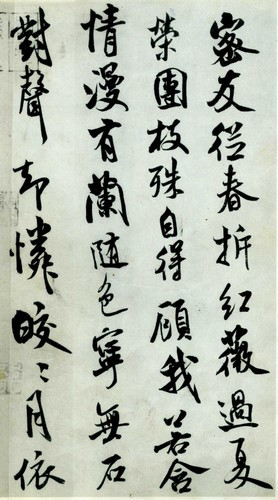 密友從春拆紅薇過夏
榮團枝殊自得顧我若含
情漫有蘭隨色寧無石
對聲却憐皎〻月依